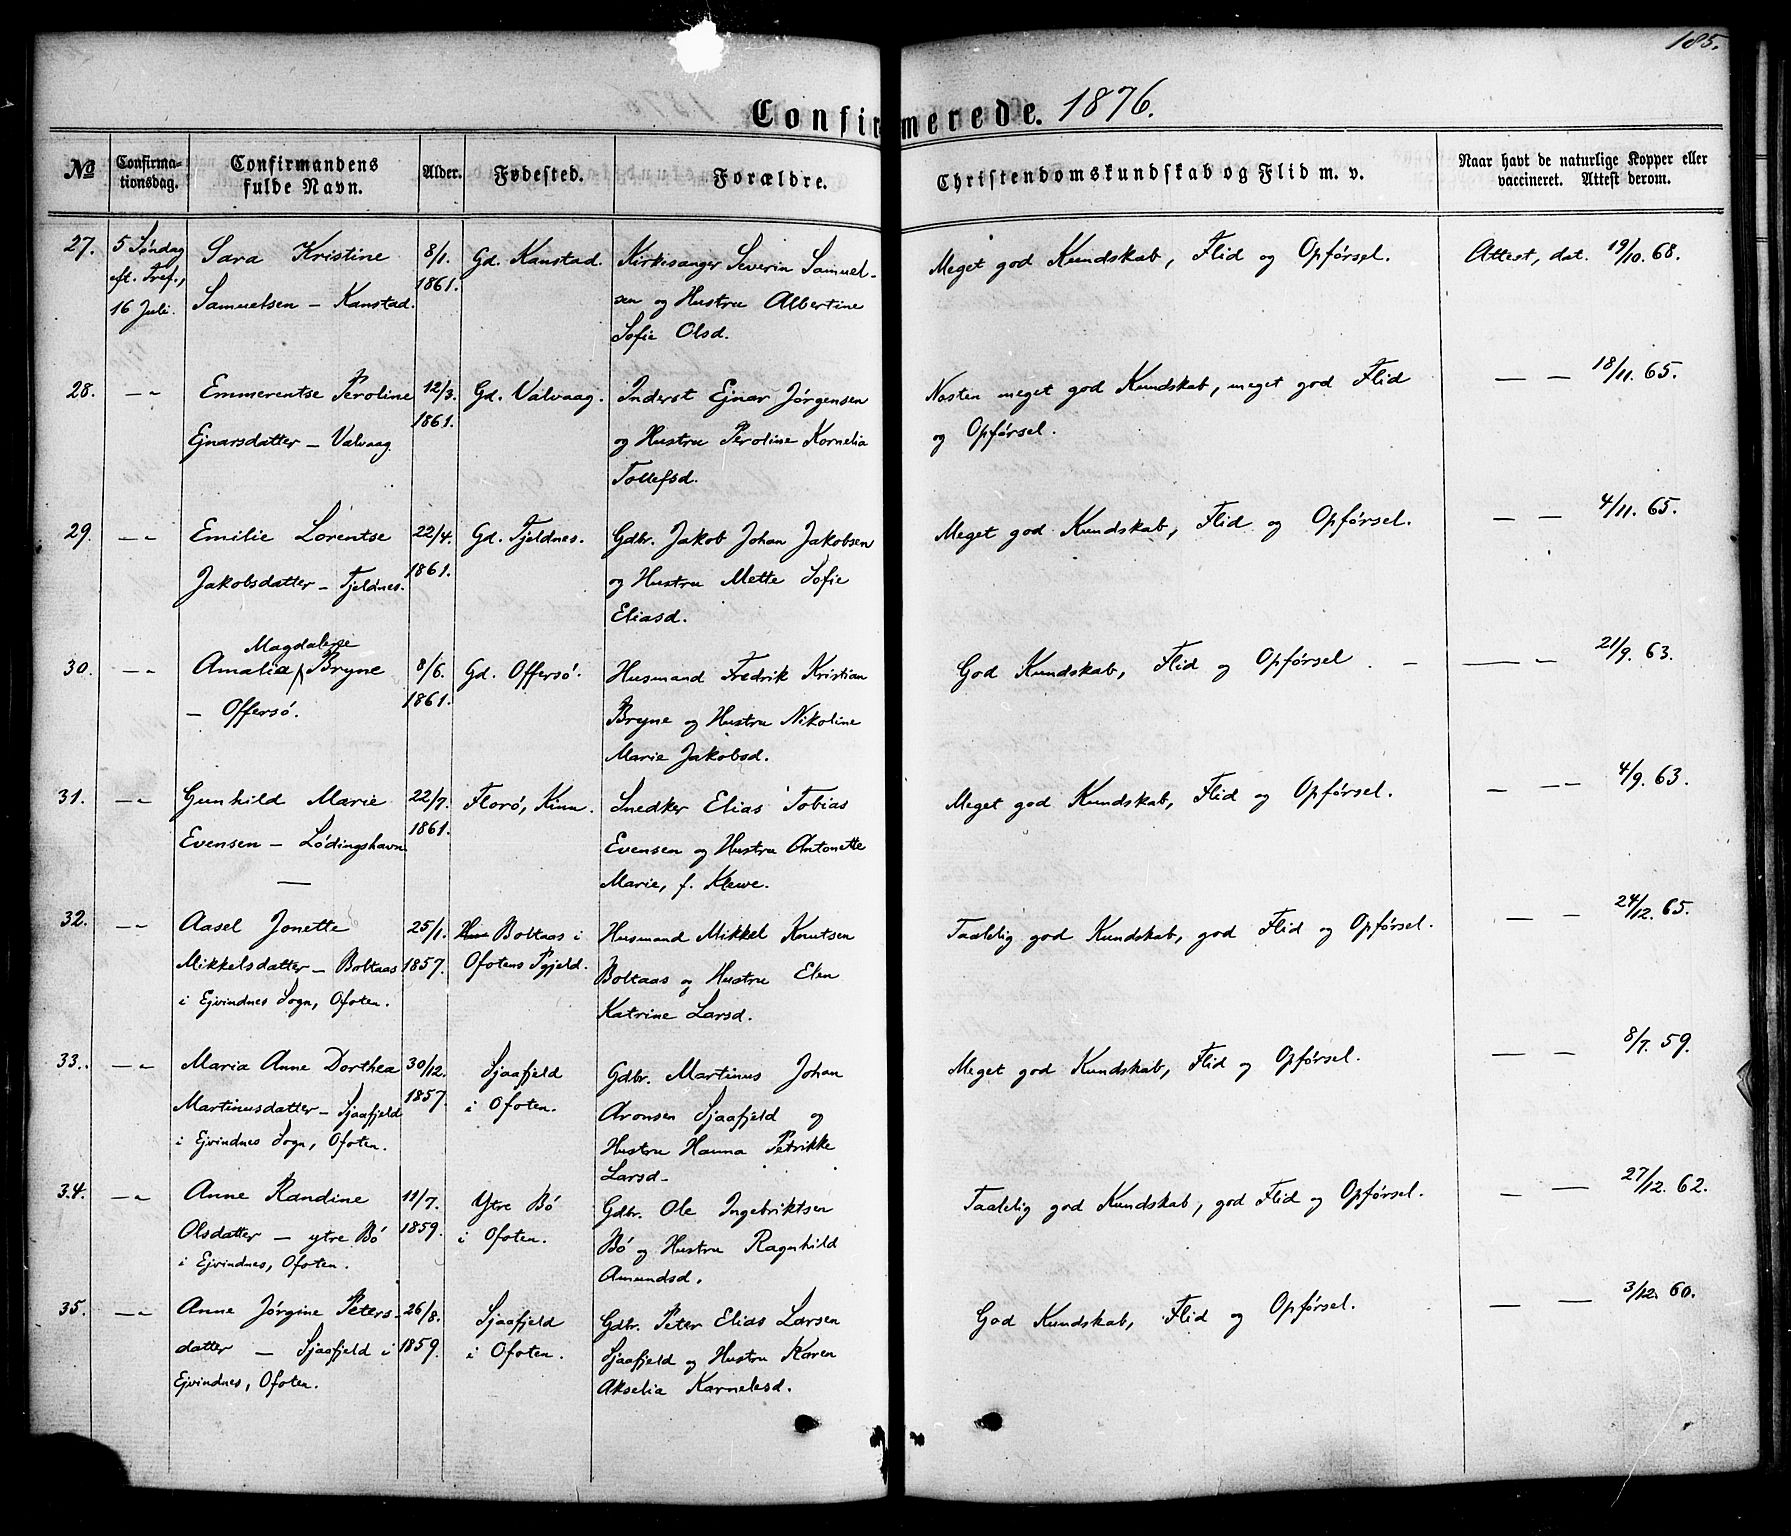 185.
Confirmerede. 1876.
No
Confirmationsdag.
Confirmandens fulde Navn.
Alder.
Fødested.
Forældre.
Christendomskundskab og Flid m. v.
Naar havt de naturlige Kopper eller vaccineret. Attest derom.
27. 5 Søndag Sara Kristine 8/1. Gd. Kanstad. Kirkesanger Severin Samuel- Meget god Kundskab, Flid og Opførsel. Attest, dat. 19/10. 68.
eft. Tref., Samuelsen — Kanstad. 1861. sen og Hustru Albertine
16 Juli. Sofie Olsd.
28. — " Emmerentse Peroline 12/3. Gd. Valvaag. Inderst Ejnar Jørgensen Næsten meget god Kundskab, meget god Flid — — 18/11. 65.
Ejnarsdatter — Valvaag. 1861. og Hustru Peroline Kornelia og Opførsel.
Tollefsd.
29. — " Emilie Lorentse 22/4. Gd. Fjeldnes. Gdbr. Jakob Johan Jakobsen Meget god Kundskab, Flid og Opførsel. — — 4/11. 65.
Jakobsdatter — Fjeldnes. 1861. og Hustru Mette Sofie
Eliasd.
Magdalene
30. — " Amalia Bryne 8/6. Gd. Offersø. Husmand Fredrik Kristian God Kundskab, Flid og Opførsel. — — — 21/9. 63.
— Offersø. 1861. Bryne og Hustru Nikoline
Marie Jakobsd.
31. — " Gunhild Marie 22/7. Florø, Kinn. Snedker Elias Tobias Meget god Kundskab, Flid og Opførsel. — — 4/9. 63.
Evensen — Lødingshavn 1861. Evensen og Hustru Antonette
— Marie, f. Klewe.
32. — " Aasel Jonette 25/1. Boltaas i Husmand Mikkel Knutsen Taalelig god Kundskab, god Flid og Opførsel. — — 24/12. 65.
Mikkelsdatter — Boltaas 1857. Ofotens Pgjeld. Boltaas og Hustru Elen
i Ejvindnes Sogn, Ofoten. Katrine Larsd.
33. — " Maria Anne Dorthea 30/12. Sjaafjeld Gdbr. Martinus Johan Meget god Kundskab, Flid og Opførsel. — — 8/7. 59.
Martinusdatter — Sjaafjeld 1857. i Ofoten. Aronsen Sjaafjeld og
i Ejvindnes Sogn, Ofoten. Hustru Hanna Petrikke
Larsd.
34. — " Anne Randine 11/7. Ytre Bø Gdbr. Ole Ingebriktsen Taalelig god Kundskab, god Flid og Opførsel. — — 27/12. 62.
Olsdatter — ytre Bø 1859. i Ofoten. Bø og Hustru Ragnhild
i Ejvindnes, Ofoten. Amundsd.
35. — " Anne Jørgine Peters- 26/8. Sjaafjeld Gdbr. Peter Elias Larsen God Kundskab, Flid og Opførsel. — — 3/12. 60.
datter — Sjaafjeld i 1859. i Ofoten. Sjaafjeld og Hustru Karen
Ejvindnes, Ofoten. Akselia Karnelesd.